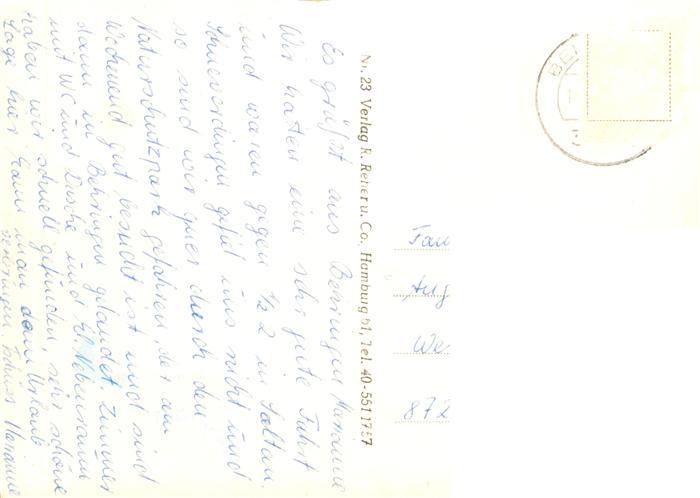 Es grüßt aus Behringen Marianne
Wir hatten eine sehr gute Fahrt
und waren gegen 1/2 2 in Soltau.
Schneverdingen gefiel uns nicht und
so sind wir quer durch den
Naturschutzpark gefahren, der am
Wochenend gut besucht ist und sind
dann in Behringen gelandet. Zimmer
mit WC und Dusche und
haben wir schnell gefunden, sehr schöne
Lage hier kann man dem Urlaub
Marianne
Nr. 23 Verlag R. Reher u. Co., Hamburg 61, Tel. 40-5511757
BE
Fam
Aug
We
872